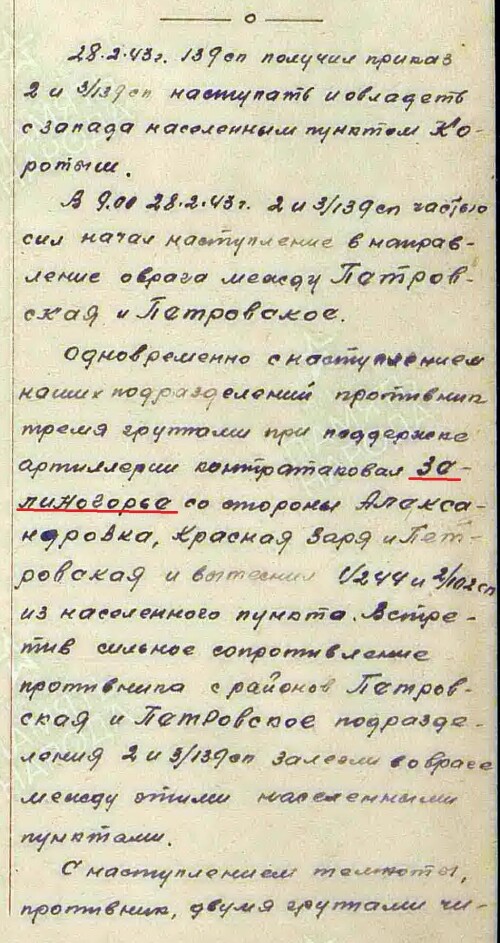 28.2.43г. 139сп получил приказ
2 и 3/139сп наступать и овладеть
с запада населенным пунктом Ко-
ротыш.
В 9.00 28.2.43г. 2 и 3/139сп частью
сил начал наступление в направ-
ление оврага между Петров-
ская и Петровское.
Одновременно с наступлением
наших подразделений противник
тремя группами при поддержке
артиллерии контратаковал За-
линогорье со стороны Алекса-
ндровка, Красная Заря и Пет-
ровская и вытеснил 1/244 и 2/102сп
из населенного пункта. Встре-
тив сильное сопротивление
противника с районов Петров-
ская и Петровское подразде-
ления 2 и 3/139сп залегли в овраге
между этими населенными
пунктами.
С наступлением темноты,
противник, двумя группами чи-